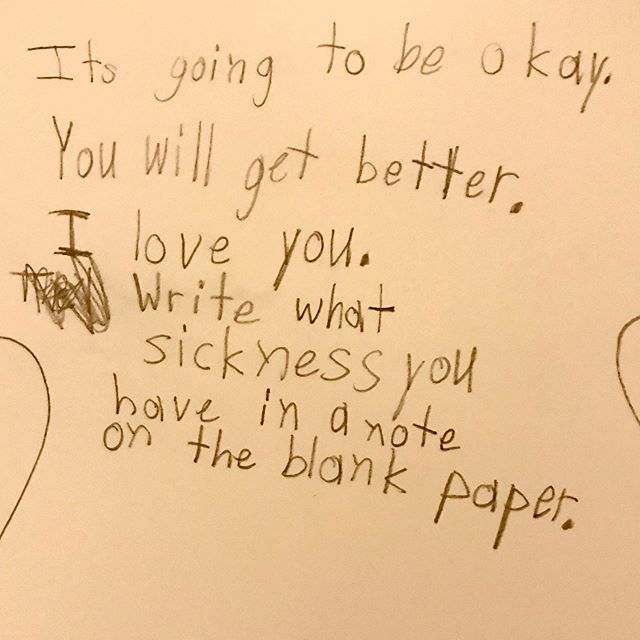 Its going to be okay.
You will get better.
I love you.
Write what
sickness you
have in a note
on the blank paper.